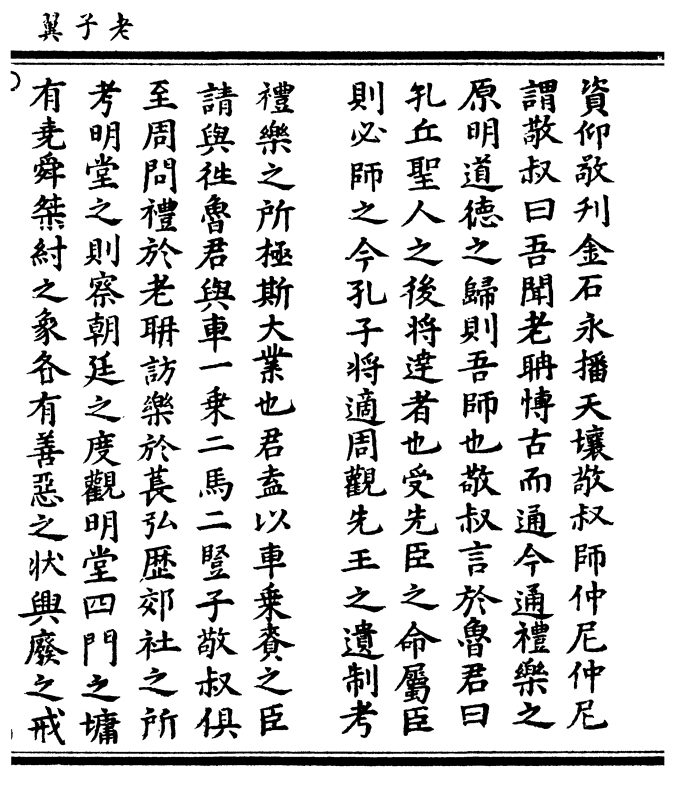 老子翼
資仰敬刋金石永播天壤敬叔師仲尼仲尼
謂敬叔曰吾聞老聃博古而通今通禮樂之
原明道德之歸則吾師也敬叔言於魯君曰
孔丘聖人之後將達者也受先臣之命屬臣
則必師之今孔子將適周觀先王之遺制考
禮樂之所極斯大業也君盍以車乗賚之臣
請與徃魯君與車一乗二馬二豎子敬叔俱
至周問禮於老聃訪樂於萇弘歴郊社之所
考明堂之則察朝廷之度觀明堂四門之墉
有堯舜桀紂之象各有善惡之狀興廢之戒